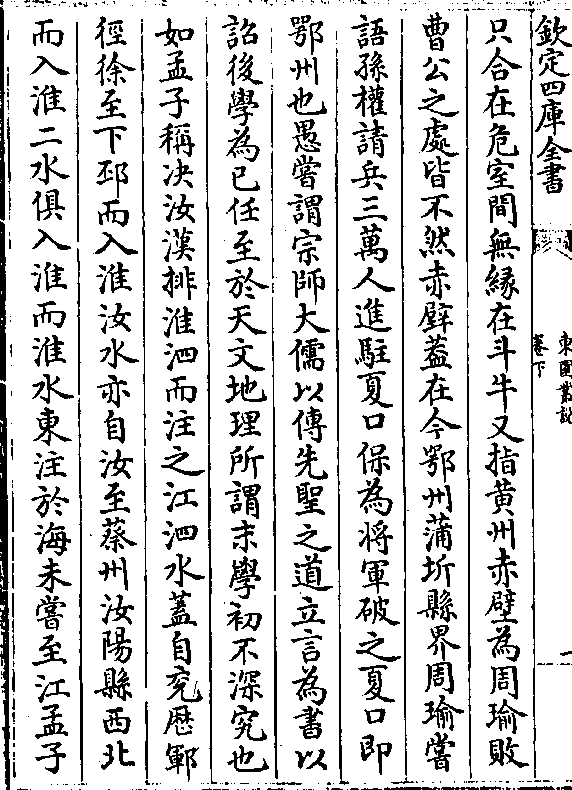 欽定四庫全書
東園叢說
卷下
一
只合在危室間無緣在斗牛又指黄州赤壁為周瑜敗
曹公之處皆不然赤壁葢在今鄂州蒲圻縣界周瑜嘗
語孫權請兵三萬人進駐夏口保為將軍破之夏口即
鄂州也愚嘗謂宗師大儒以傳先聖之道立言為書以
詔後學為已任至於天文地理所謂末學初不深究也
如孟子稱决汝漢排淮泗而注之江泗水葢自兖歴鄆
徑徐至下邳而入淮汝水亦自汝至蔡州汝陽縣西北
而入淮二水俱入淮而淮水東注於海未嘗至江孟子